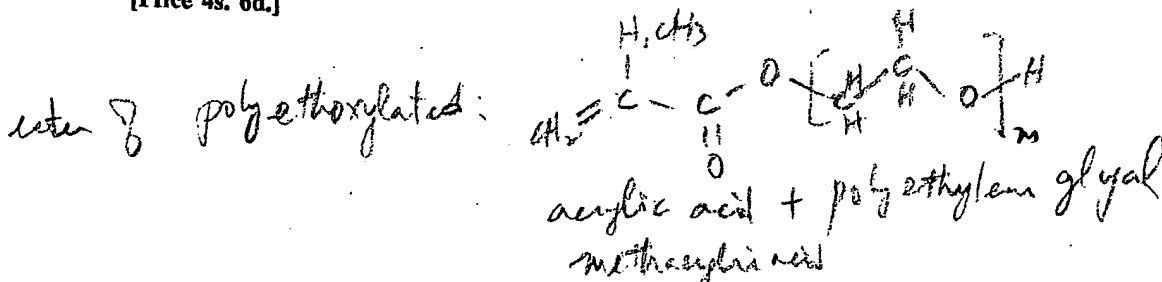 [Price 4s. 6d.]
H, CH3
ester of polyethoxylated:
CH2 = C - C - O [ C H H - C H H - O ] H
O
m
acrylic acid + polyethylene glycol
methacrylic acid